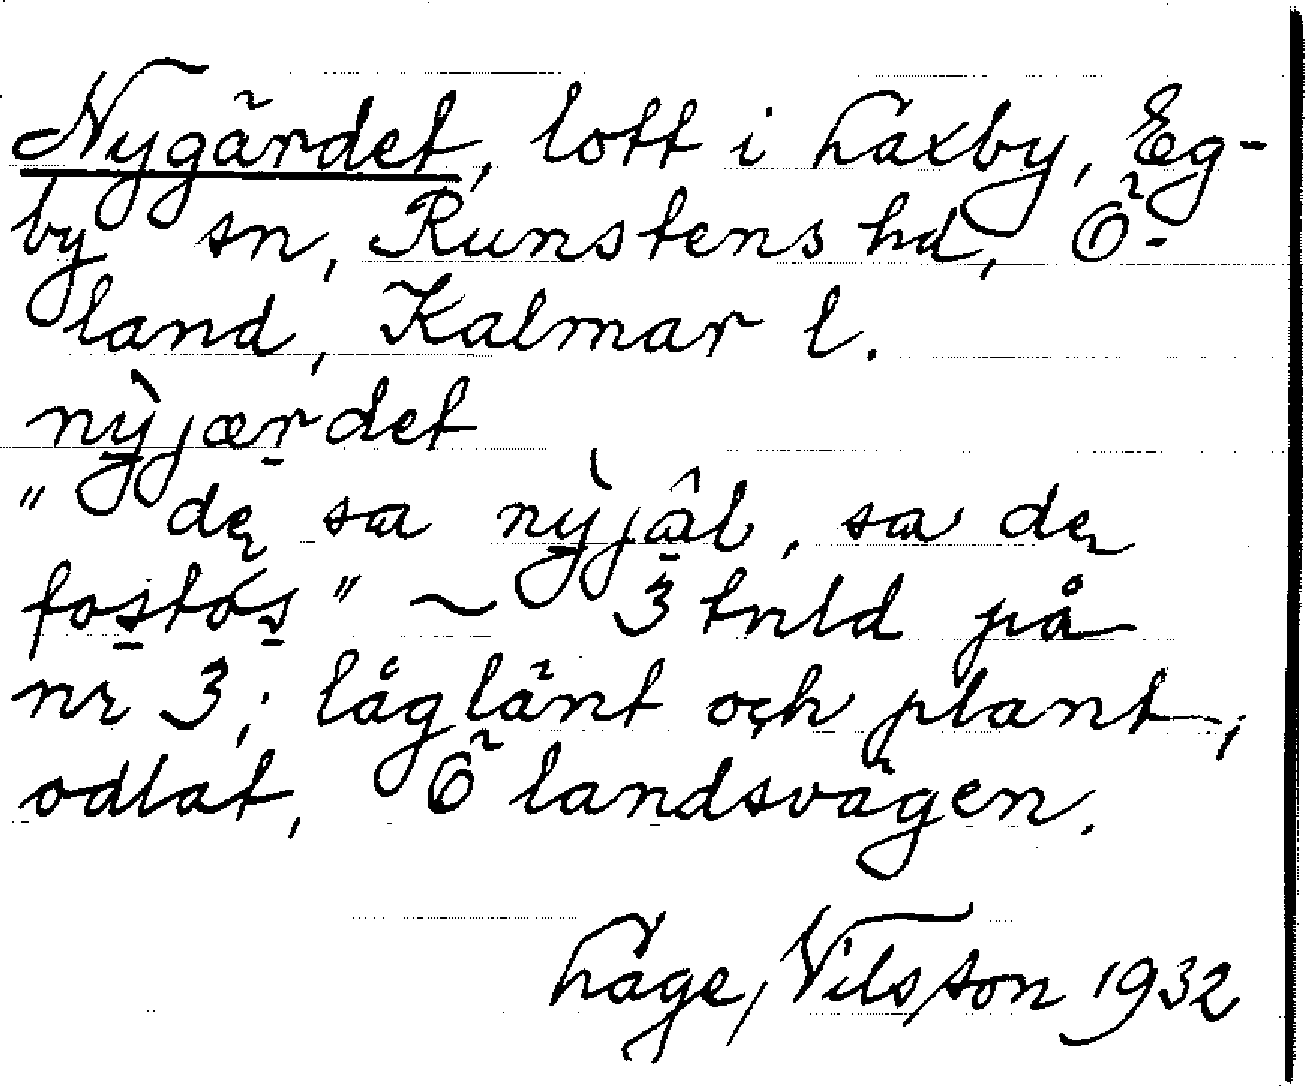 Nygärdet, lott i Laxby, Eg-
by sn, Runstens hd, Ö-
land, Kalmar l.
nỳjærdet
" de sa nỳjâl, sa de
fostås" ~ 3 tnld på
nr 3; låglänt och plant,
odlat, Ö landsvägen.
Låge, Nilsson 1932